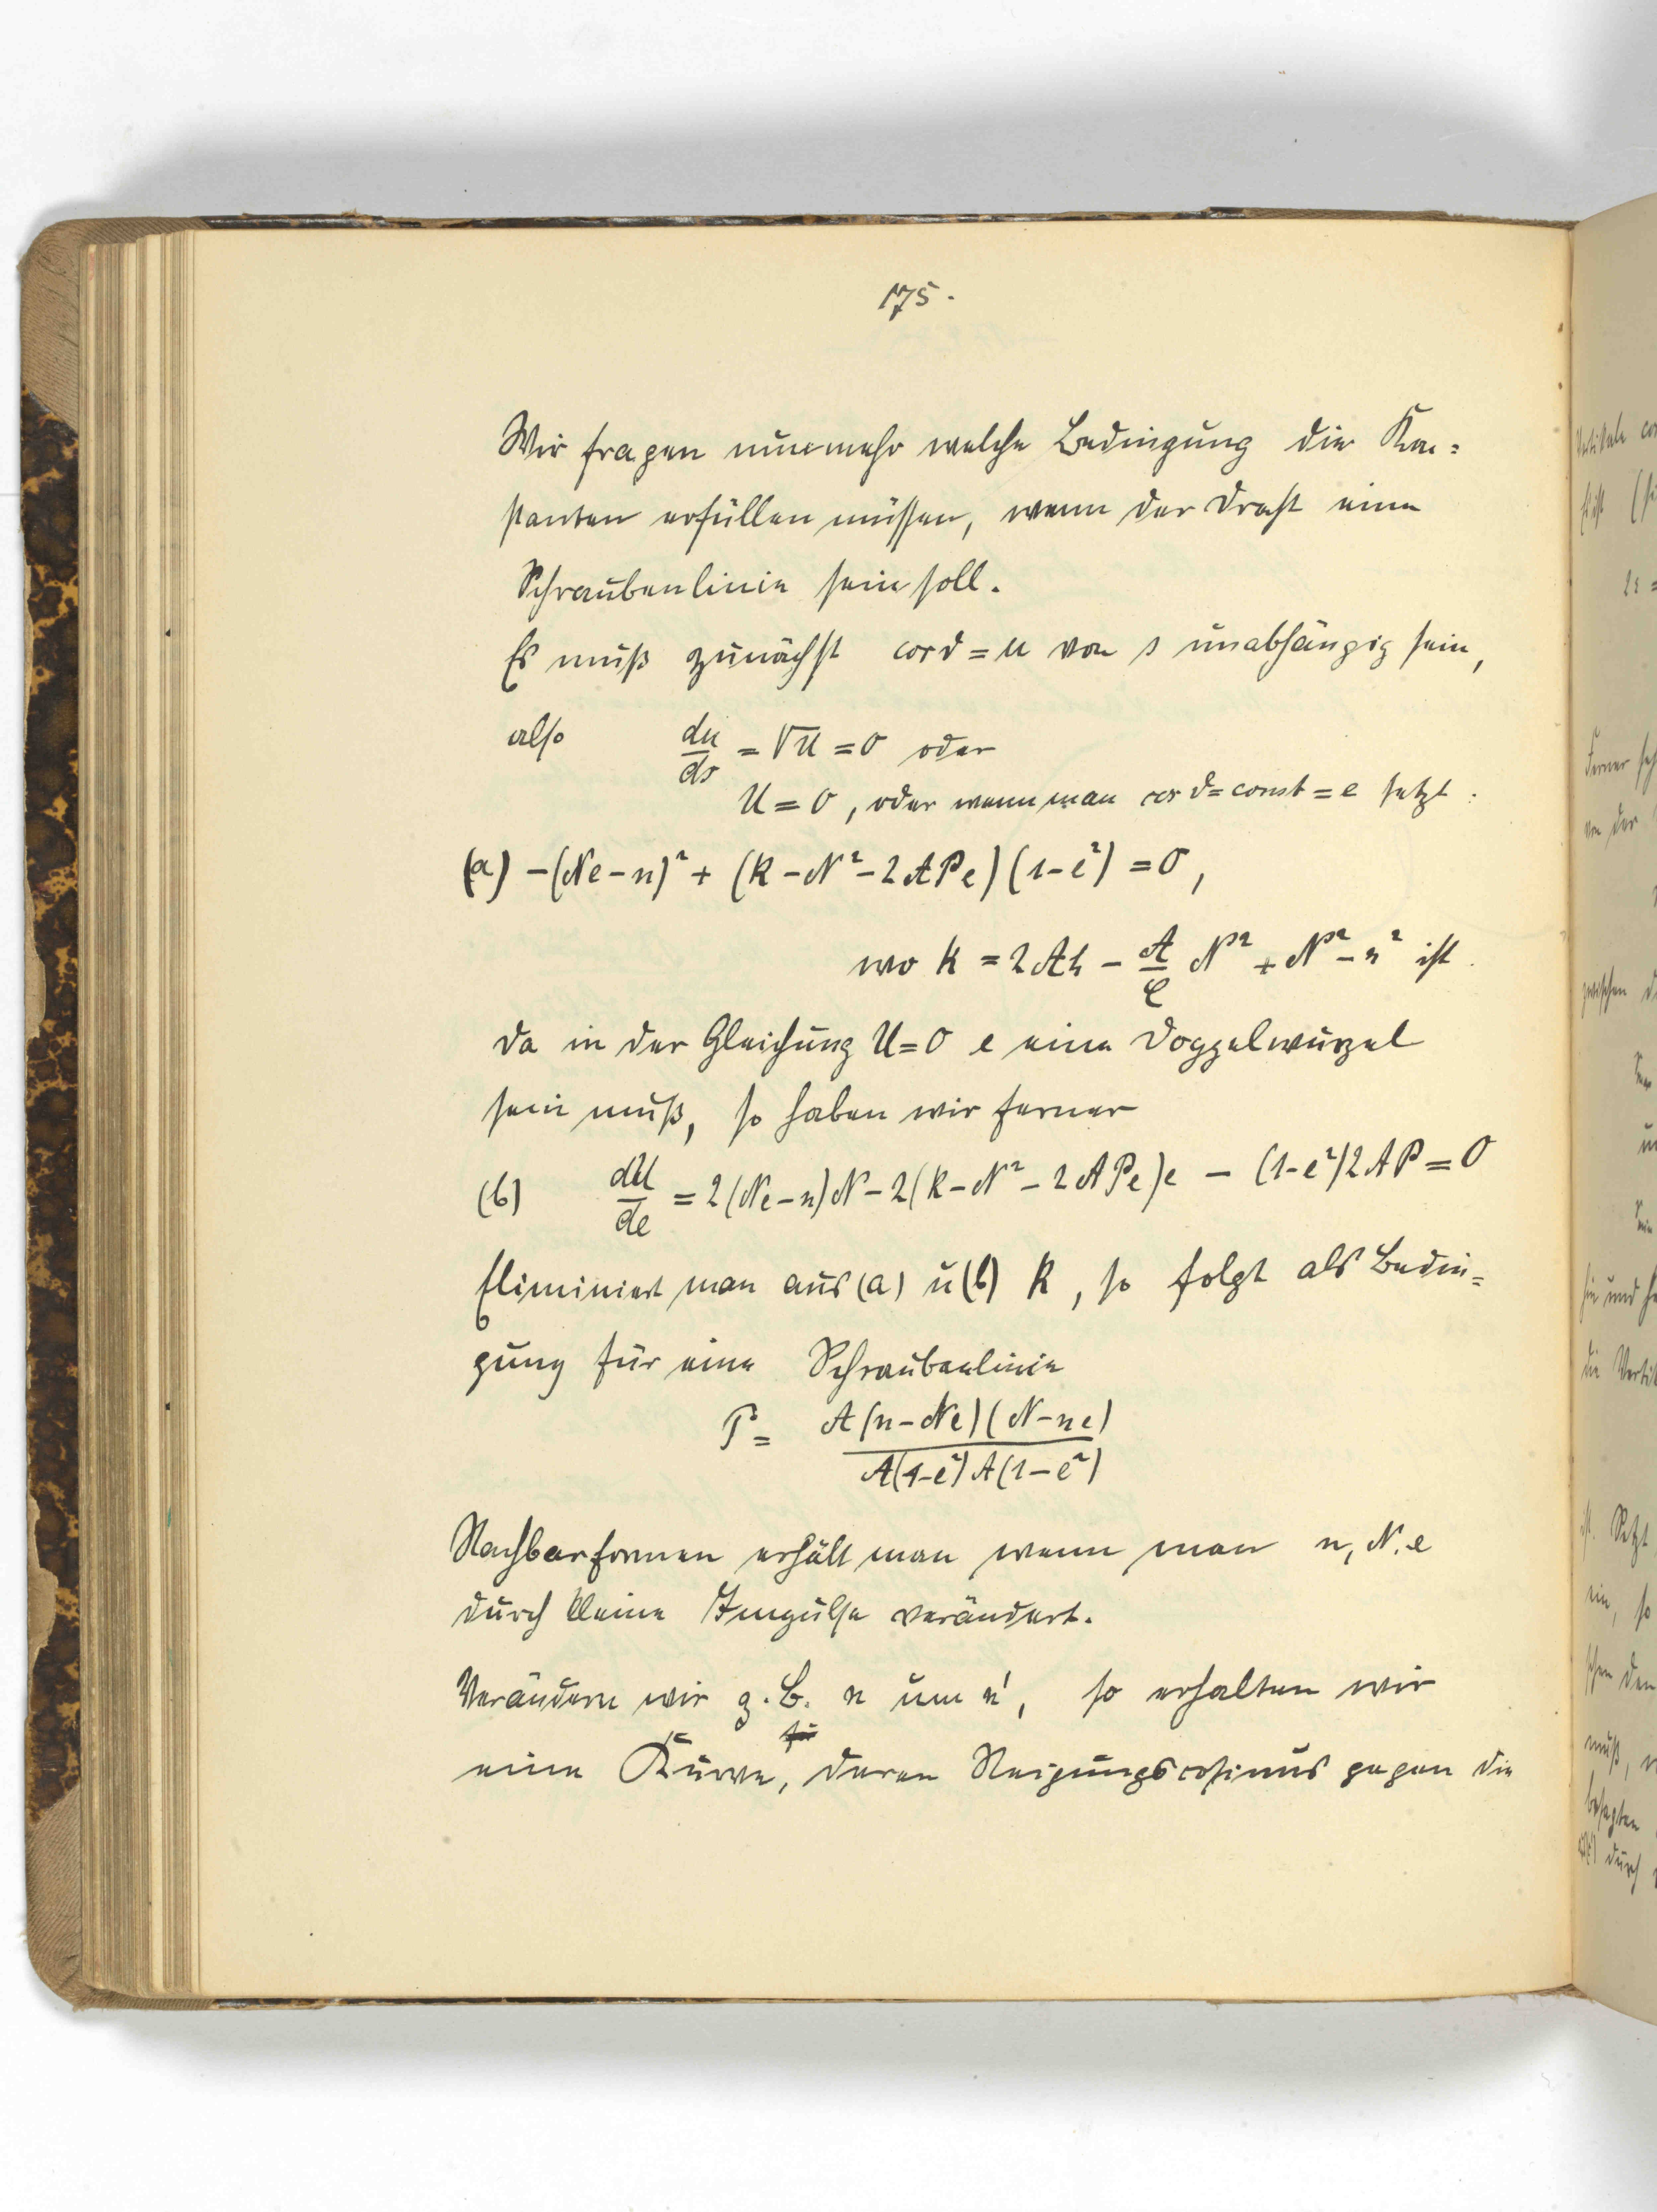 175.
Wir fragen nunmehr welche Bedingung die Kon=
stanten erfüllen müssen, wenn der Draht eine
Schraubenlinie sein soll.
Es muß zunächst cos ϑ = u von s unabhängig sein,
also du/ds = √U = 0 oder
U = 0, oder wenn man cos ϑ = const = e setzt.
(a) −(Ne−n)² + (k−N²−2APe)(1−e²) = 0,
wo k = 2Ah − A/C N² + N² − n² ist.
da in der Gleichung U=0 e eine Doppelwurzel
sein muß, so haben wir ferner
(b) dU/de = 2(Ne−n)N − 2(k−N²−2APe)e − (1−e²)2AP = 0
Eliminiert man aus (a) u (b) k, so folgt als Bedin=
gung für eine Schraubenlinie
P = A(n−Ne)(N−ne) / A(1−e²)A(1−e²)
Nachbarformen erhält man wenn man n, N, e
durch kleine Impulse verändert.
Verändern wir z.B. n um n', so erhalten wir
eine Kurve, deren Neigungscosinus gegen die